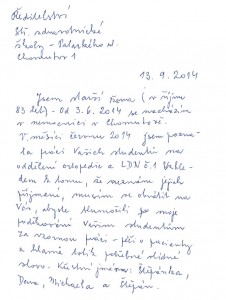 Ředitelství
Stř. zdravotnické
školy - Palackého ul.
Chomutov 1
13. 9. 2014
Jsem starší žena (v říjnu
83 let) - Od 3. 6. 2014 se nacházím
v nemocnici v Chomutově.
V měsíci červnu 2014 jsem pozna-
la práci Vašich studentů na
oddělení ortopedie a LDN č. 1 Vzhle-
dem k tomu, že neznám jejich
příjmení, musím se obrátit na
Vás, abyste tlumočili jim moje
poděkování Vašim studentům
za vzornou práci - péči o pacienty
a hlavně tolik potřebné vlídné
slovo. Křestní jména: Štěpánka,
Dana, Michaela a Štěpán.